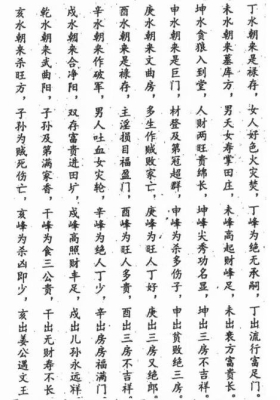 丁水朝来是禄存，女人好色火灾焚，丁峰为绝无承嗣，丁出流行富足门。
未水朝来墓库方，男夭女寿掌田庄，未峰高起财峰足，未出丧方富贵长。
坤水贪狼入到堂，人财两旺贵绵长，坤峰尖秀功名显，坤出三房不吉祥。
申水朝来是巨门，材登及第冠超群，申峰为杀多伤子，申出贫败绝三房。
庚水朝来文曲房，多生作贼败家亡，庚峰为旺人丁好，庚出三房又绝郎。
酉水朝来是禄存，主淫损目福盈门，酉峰为旺人多贵，酉出三房不吉祥。
辛水朝来作破军，男人吐血女灾轮，辛峰为绝人丁少，辛出房房福满门。
戌水朝来合净阳，双存富贵进田圹，戌峰高照财丰足，戌出儿孙永远祥。
乾水朝来武曲阳，子孙及第满家香，干峰为食三公贵，干出无财寿不长。
亥水朝来杀旺方，子孙为贼死伤亡，亥峰为杀凶即少，亥出姜公遇文王